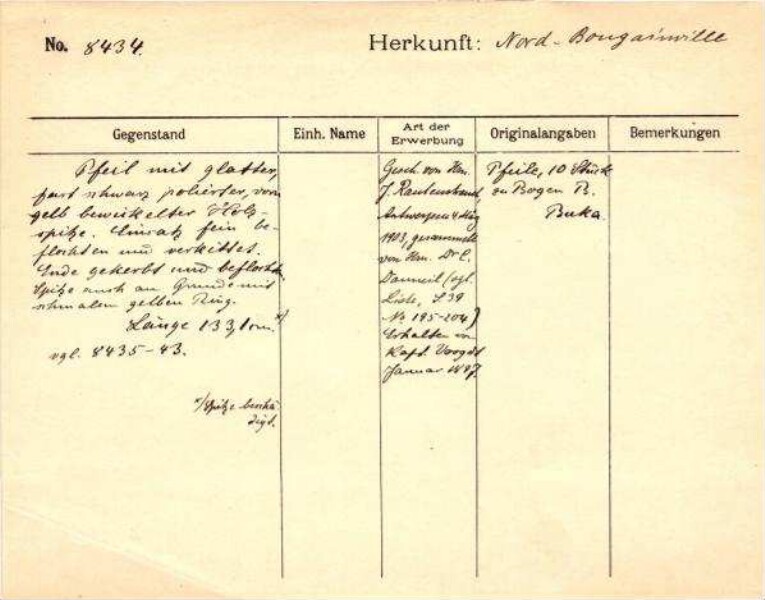 No. 8434.
Herkunft: Nord-Bougainville
Gegenstand
Einh. Name
Art der Erwerbung
Originalangaben
Bemerkungen
Pfeil mit glatter,
fast schwarz polierter, vorn
gelb bewickelter Holz-
spitze. Einsatz fein be-
flochten und verkittet.
Ende gekerbt und beflochten.
Spitze auch am Grunde mit
schmalem gelben Ring.
Länge 133,1 cm. *)
vgl. 8435-43.
*) Spitze beschä-
digt.
Gesch. von Hrn.
J. Rautenstrauch,
Antwerpen 4 Mai
1903, gesammelt
von Hrn. Dr C.
Danneil (vgl.
Liste, S 39
No 195-204)
Erhalten von
Kapt. Voogdt
Januar 1897.
Pfeile, 10 Stück
zu Bogen B.
Buka.